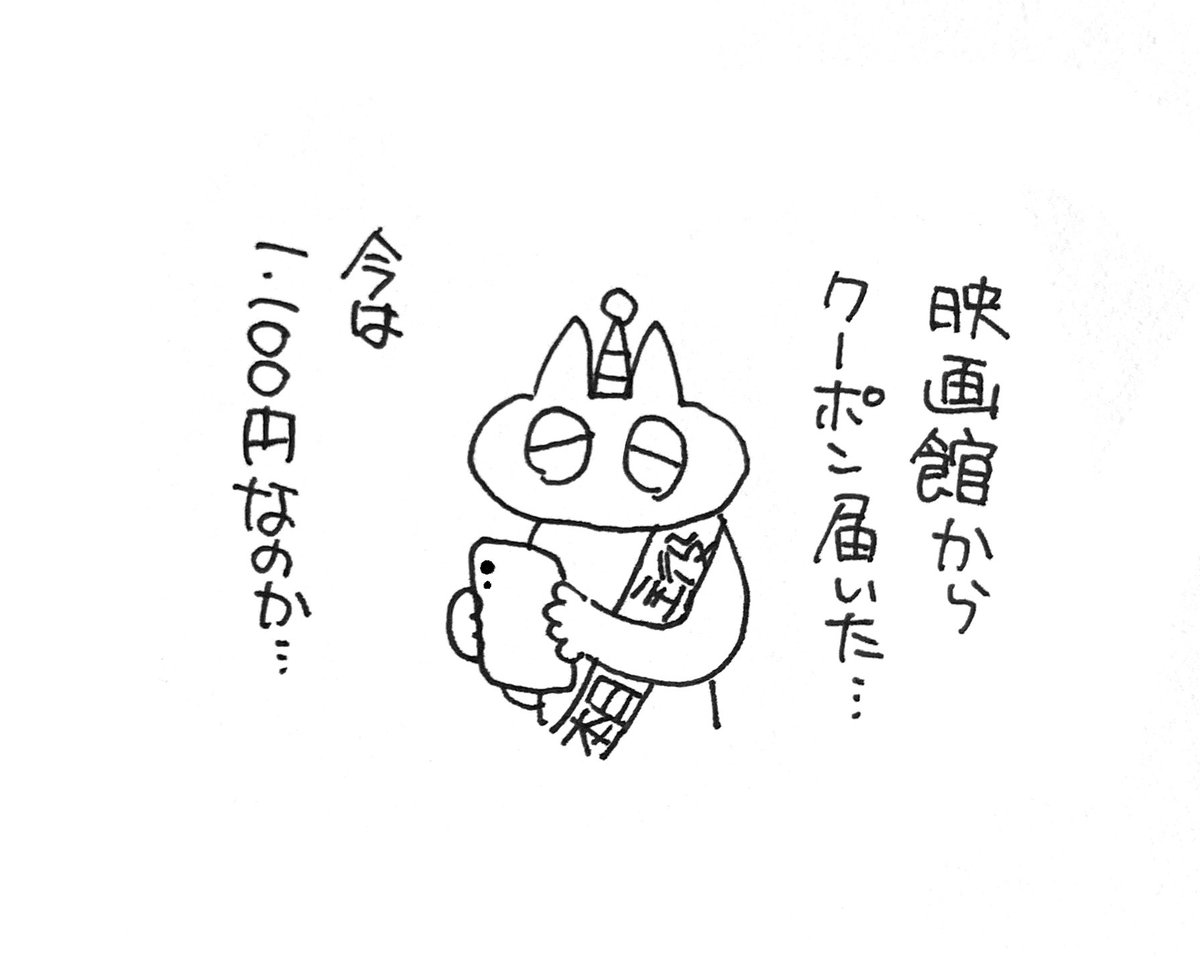 映画館から
クーポン届いた…
今は
一.一〇〇円なのか…